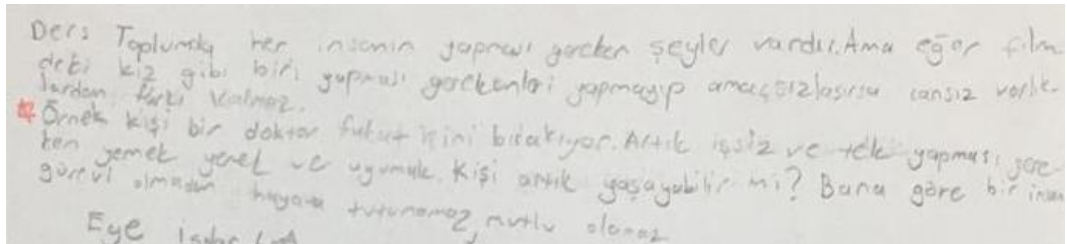 Ders Toplumda her insanın yapması gereken şeyler vardır. Ama eğer film
deki kız gibi biri yapması gerekenleri yapmayıp amaçsızlaşırsa cansız varlık-
lardan farkı kalmaz.
Örnek kişi bir doktor fakat işini bırakıyor. Artık işsiz ve tek yapması gere
ken yemek yemek ve uyumak. Kişi artık yaşayabilir mi? Bana göre bir insan
görevi olmadan hayata tutunamaz, mutlu olamaz
Ege